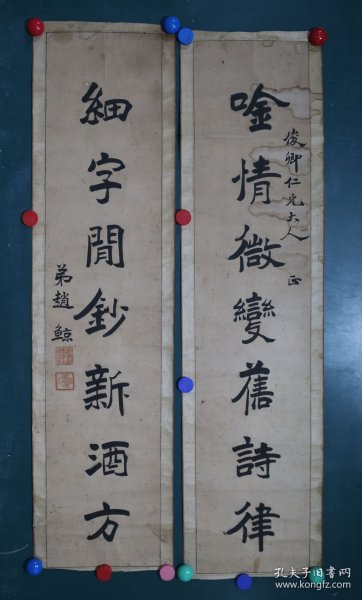 唫情微變舊詩律
俊卿仁兄大人 正
細字閒鈔新酒方
弟趙鯨
孔夫子旧书网
www.kongfz.com